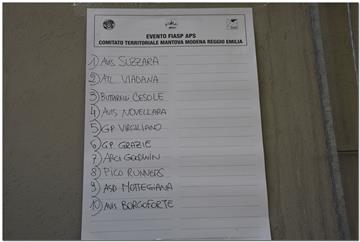 EVENTO FIASP APS
COMITATO TERRITORIALE MANTOVA MODENA REGGIO EMILIA
1) AVIS SUZZARA
2) ATL VIADANA
3) BUTARELI CESOLE
4) AVIS NOVELLARA
5) GP VIRGILIANO
6) GP GRAZIE
7) ARCI GOODWIN
8) PICO RUNNERS
9) ASD MOTTEGIANA
10) AVIS BORGOFORTE